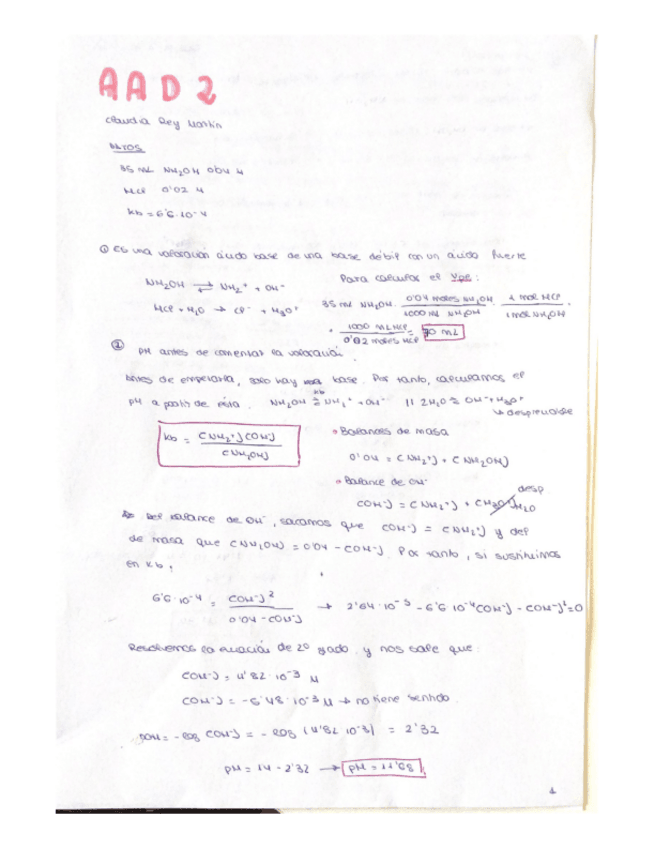 AAD 2
Claudia Rey Martín
DATOS
35 mL NH₂OH 0'04 M
HCl 0'02 M
kb = 6'6·10⁻⁴
① Es una valoración ácido base de una base débil con un ácido fuerte
NH₂OH ⇌ NH₂⁺ + OH⁻
HCl + H₂O → Cl⁻ + H₃O⁺
Para calcular el Vpe:
35 mL NH₂OH · 0'04 moles NH₂OH / 1000 mL NH₂OH · 1 mol HCl / 1 mol NH₂OH ·
· 1000 mL HCl / 0'02 moles HCl = 70 mL
② pH antes de comenzar la valoración.
Antes de empezarla, solo hay base. Por tanto, calculamos el
pH a partir de ésta. NH₂OH ⇌ kb NH₂⁺ + OH⁻ || 2H₂O ⇌ OH⁻ + H₃O⁺
↳ despreciable
kb = [NH₂⁺][OH⁻] / [NH₂OH]
• Balances de masa
0'04 = [NH₂⁺] + [NH₂OH]
• Balance de OH⁻
desp
[OH⁻] = [NH₂⁺] + [H₃O⁺]H₂O
Del balance de OH⁻, sacamos que [OH⁻] = [NH₂⁺] y del
de masa que [NH₂OH] = 0'04 - [OH⁻]. Por tanto, si sustituimos
en kb:
6'6·10⁻⁴ = [OH⁻]² / 0'04 - [OH⁻] → 2'64·10⁻⁵ - 6'6·10⁻⁴[OH⁻] - [OH⁻]² = 0
Resolvemos la ecuación de 2º grado y nos sale que:
[OH⁻] = 4'82·10⁻³ M
[OH⁻] = -5'48·10⁻³ M → no tiene sentido
pOH = -log [OH⁻] = -log (4'82·10⁻³) = 2'32
pH = 14 - 2'32 → pH = 11'68
1